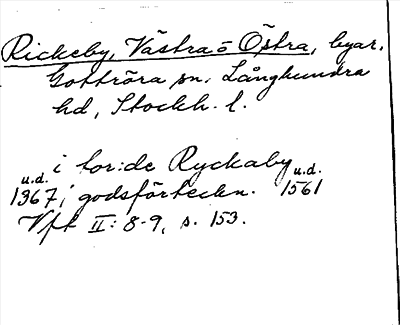 Rickeby, Västra o Östra, byar.
Gottröra sn, Långhundra
hd, Stockh. l.
i tor:de Ryckaby u.d.
u.d. 1367, i godsförteckn. 1561
Vft II: 8-9, s. 153.